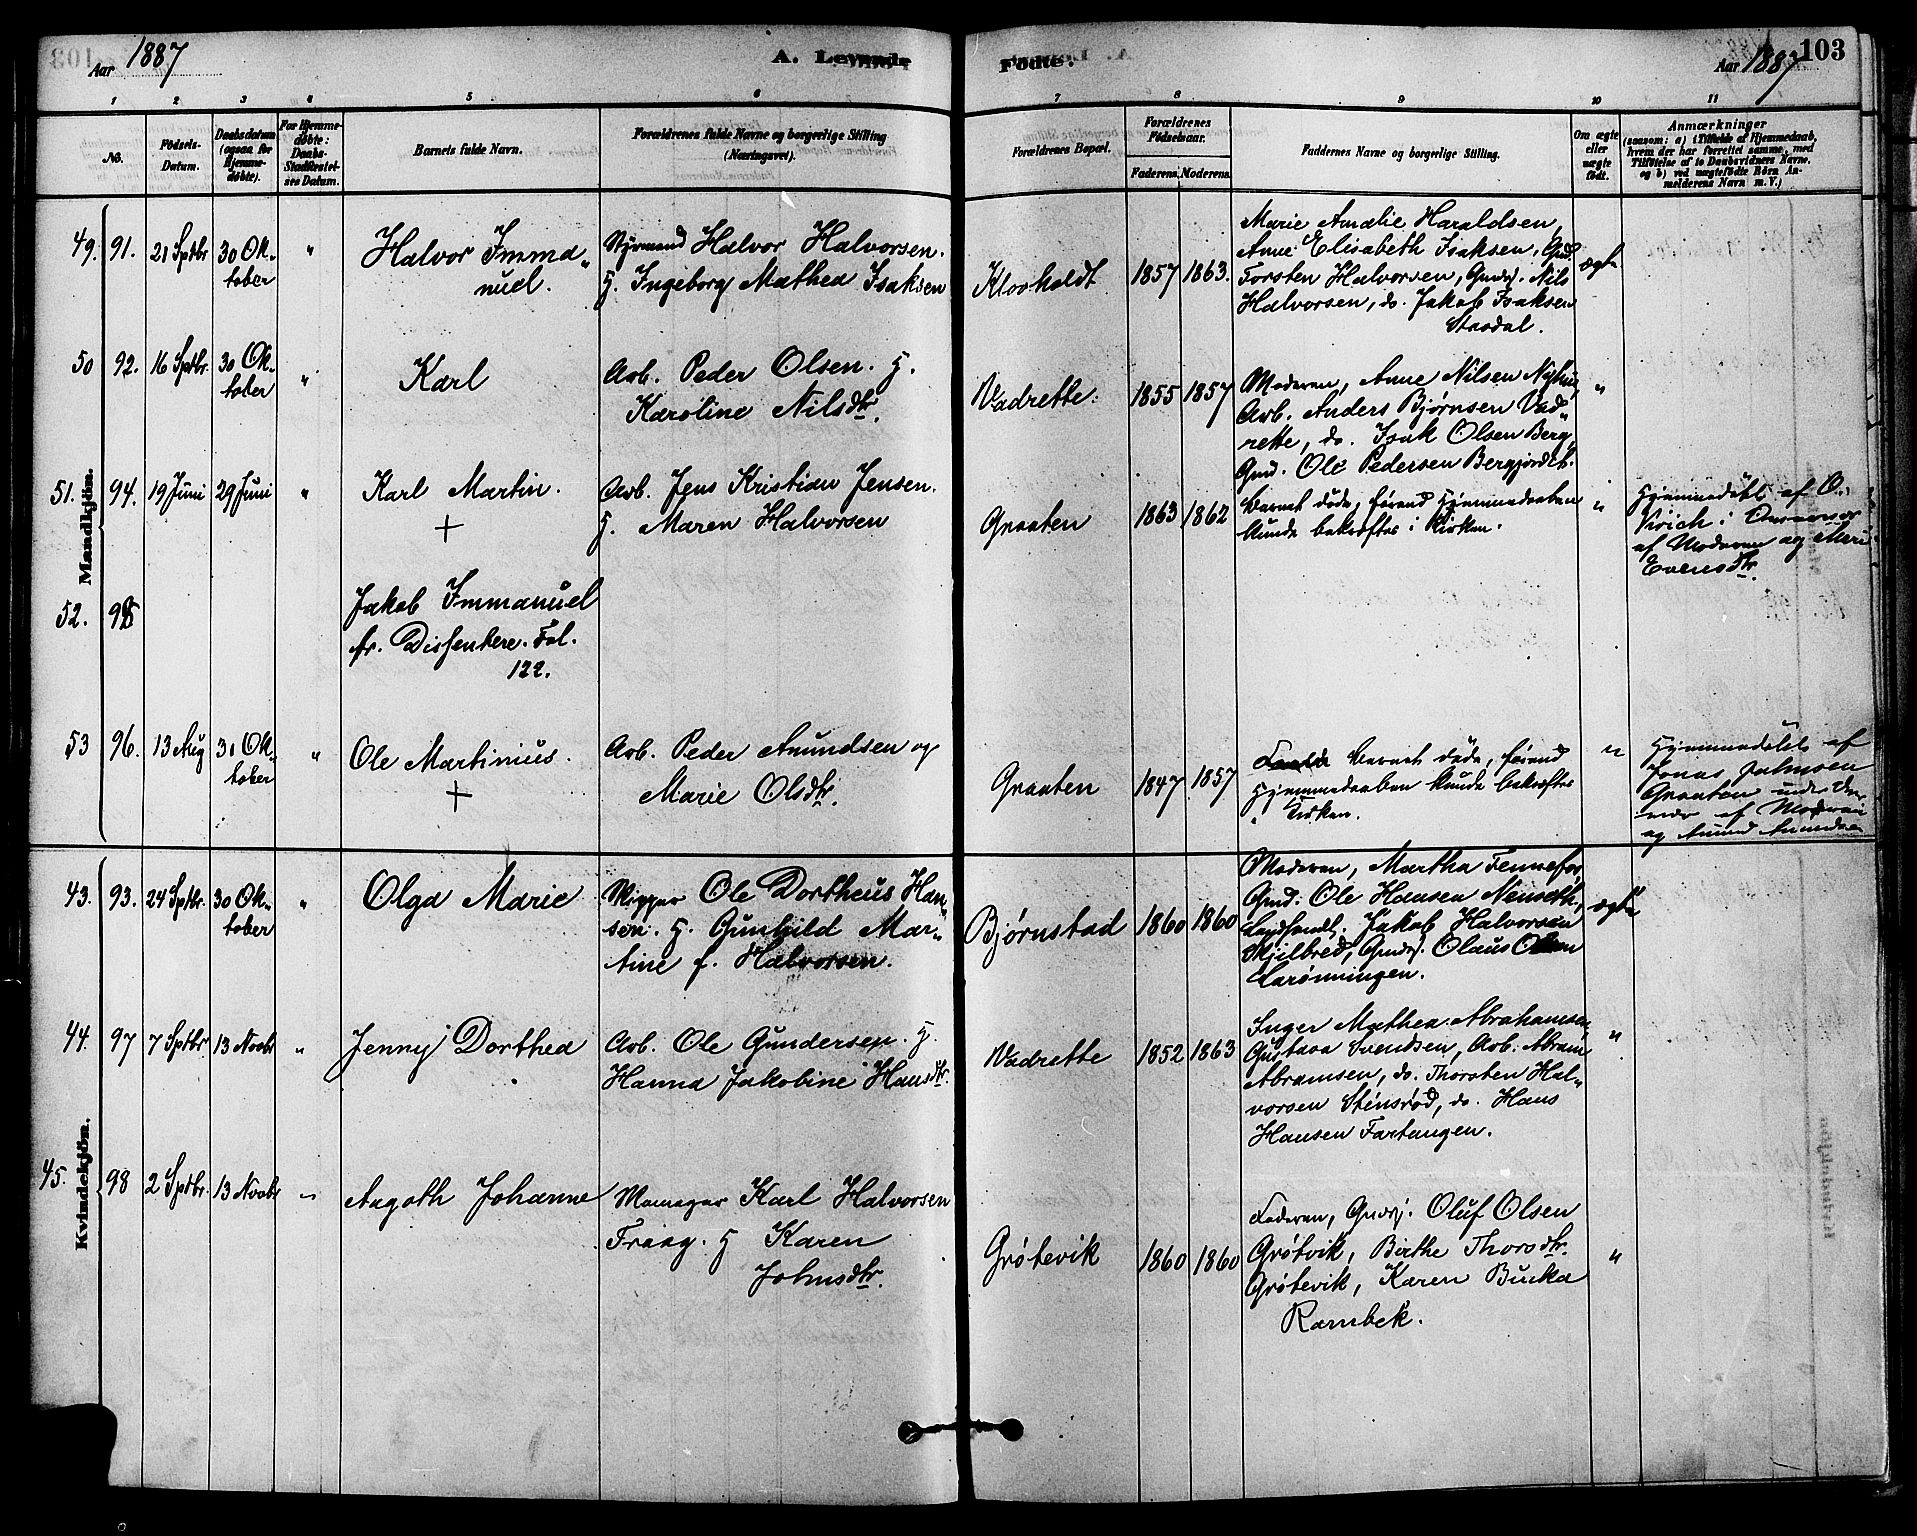 Aar 1887
A. Levende
Fødte.
Aar 1887
103
1 2 3 4 5 6 7 8 9 10 11
No.
Fødsels-
Datum.
Daabsdatum
(ogsaa for
Hjemme-
døbte).
For Hjemme-
døbte:
Daabs-
Stadfæstel-
ses Datum.
Barnets fulde Navn.
Forældrenes fulde Navne og borgerlige Stilling
(Næringsvei).
Forældrenes Bopæl.
Forældrenes
Fødselsaar.
Faderens. Moderens.
Faddernes Navne og borgerlige Stilling.
Om ægte
eller
uægte
født.
Anmærkninger
(saasom: a) i Tilfælde af Hjemmedaab,
hvem der har forrettet samme, med
Tilføielse af to Daabsvidners Navne,
og b) ved uægtefødte Børn An-
melderens Navn m. V.)
Mandkjön.
49. 91. 21 Sptbr 30 Ok-
tober
"
Halvor Imma-
nuel.
Styrmand Halvor Halvorsen.
H. Ingeborg Mathea Isaksen
Klovholdt 1857 1863.
Marie Amalie Haraldsen,
Anne Elisabeth Isaksen, Gmd.
Torsten Halvorsen, Gmdsj. Nils
Halvorsen, do. Jakob Isaksen
ægte
50 92. 16 Sptbr. 30 Ok-
tober
"
Karl
Arb. Peder Olsen. H.
Karoline Nilsdtr.
Vadrette. 1855 1857
Moderen, Anne Nilsen
Arb. Anders Bjørnsen Vad-
rette, do. Isak Olsen Berg,
Gmd. Ole Pedersen Bergjordet.
"
51. 94. 19 Juni 29 Juni "
Karl Martin.
+
Arb. Jens Kristian Jensen.
H. Maren Halvorsen
Graaten 1863 1862
Barnet døde, førend Hjemmedaaben
kunde bekræftes i Kirken.
"
Hjemmedøbt af O.
af Moderen og
Evensdtr.
52. 95
Jakob Immanuel
fr. Dissentere. Fol.
122.
53 96. 13 Aug 31 Ok-
tober
"
Ole Martinius.
+
Arb. Peder Amundsen og
Marie Olsdtr.
Graaten 1847 1857
Barnet døde, førend
Hjemmedaaben kunde bekræftes
i Kirken.
"
Hjemmedøbt af
Jonas
Graaten
af Moderen
og Amund
Kvindekjön.
43. 93. 24 Sptbr. 30 Ok-
tober
"
Olga Marie
Skipper Ole Dortheus Han-
sen. H. Gunhild Mar-
tine f. Halvorsen.
Bjørnstad 1860 1860
Moderen, Martha Tennefos,
Gmd. Ole Hansen Nenseth,
Landhandl. Jakob Halvorsen
Skjilbred, Gmdsj. Olaus Olsen
Larønningen.
ægte
44. 97 7 Sptbr. 13 Novbr "
Jenny Dorthea
Arb. Ole Gundersen. H.
Hanna Jakobine Hansdtr.
Vadrette 1852 1863
Inger Mathea Abrahamsen,
Gustava Svendsen, Arb. Abram
Abramsen, do. Thorsten Hal-
vorsen Stensrød, do. Hans
Hansen Fartangen.
"
45. 98 2 Sptbr. 13 Novbr "
Aagoth Johanne
Karl Halvorsen
H Karen
Johnsdtr.
Grøtevik 1860 1860
Faderen, Gmdsj. Oluf Olsen
Grøtvik, Birthe Thorsdtr.
Grøtevik, Karen Bucka
Rambek.
"